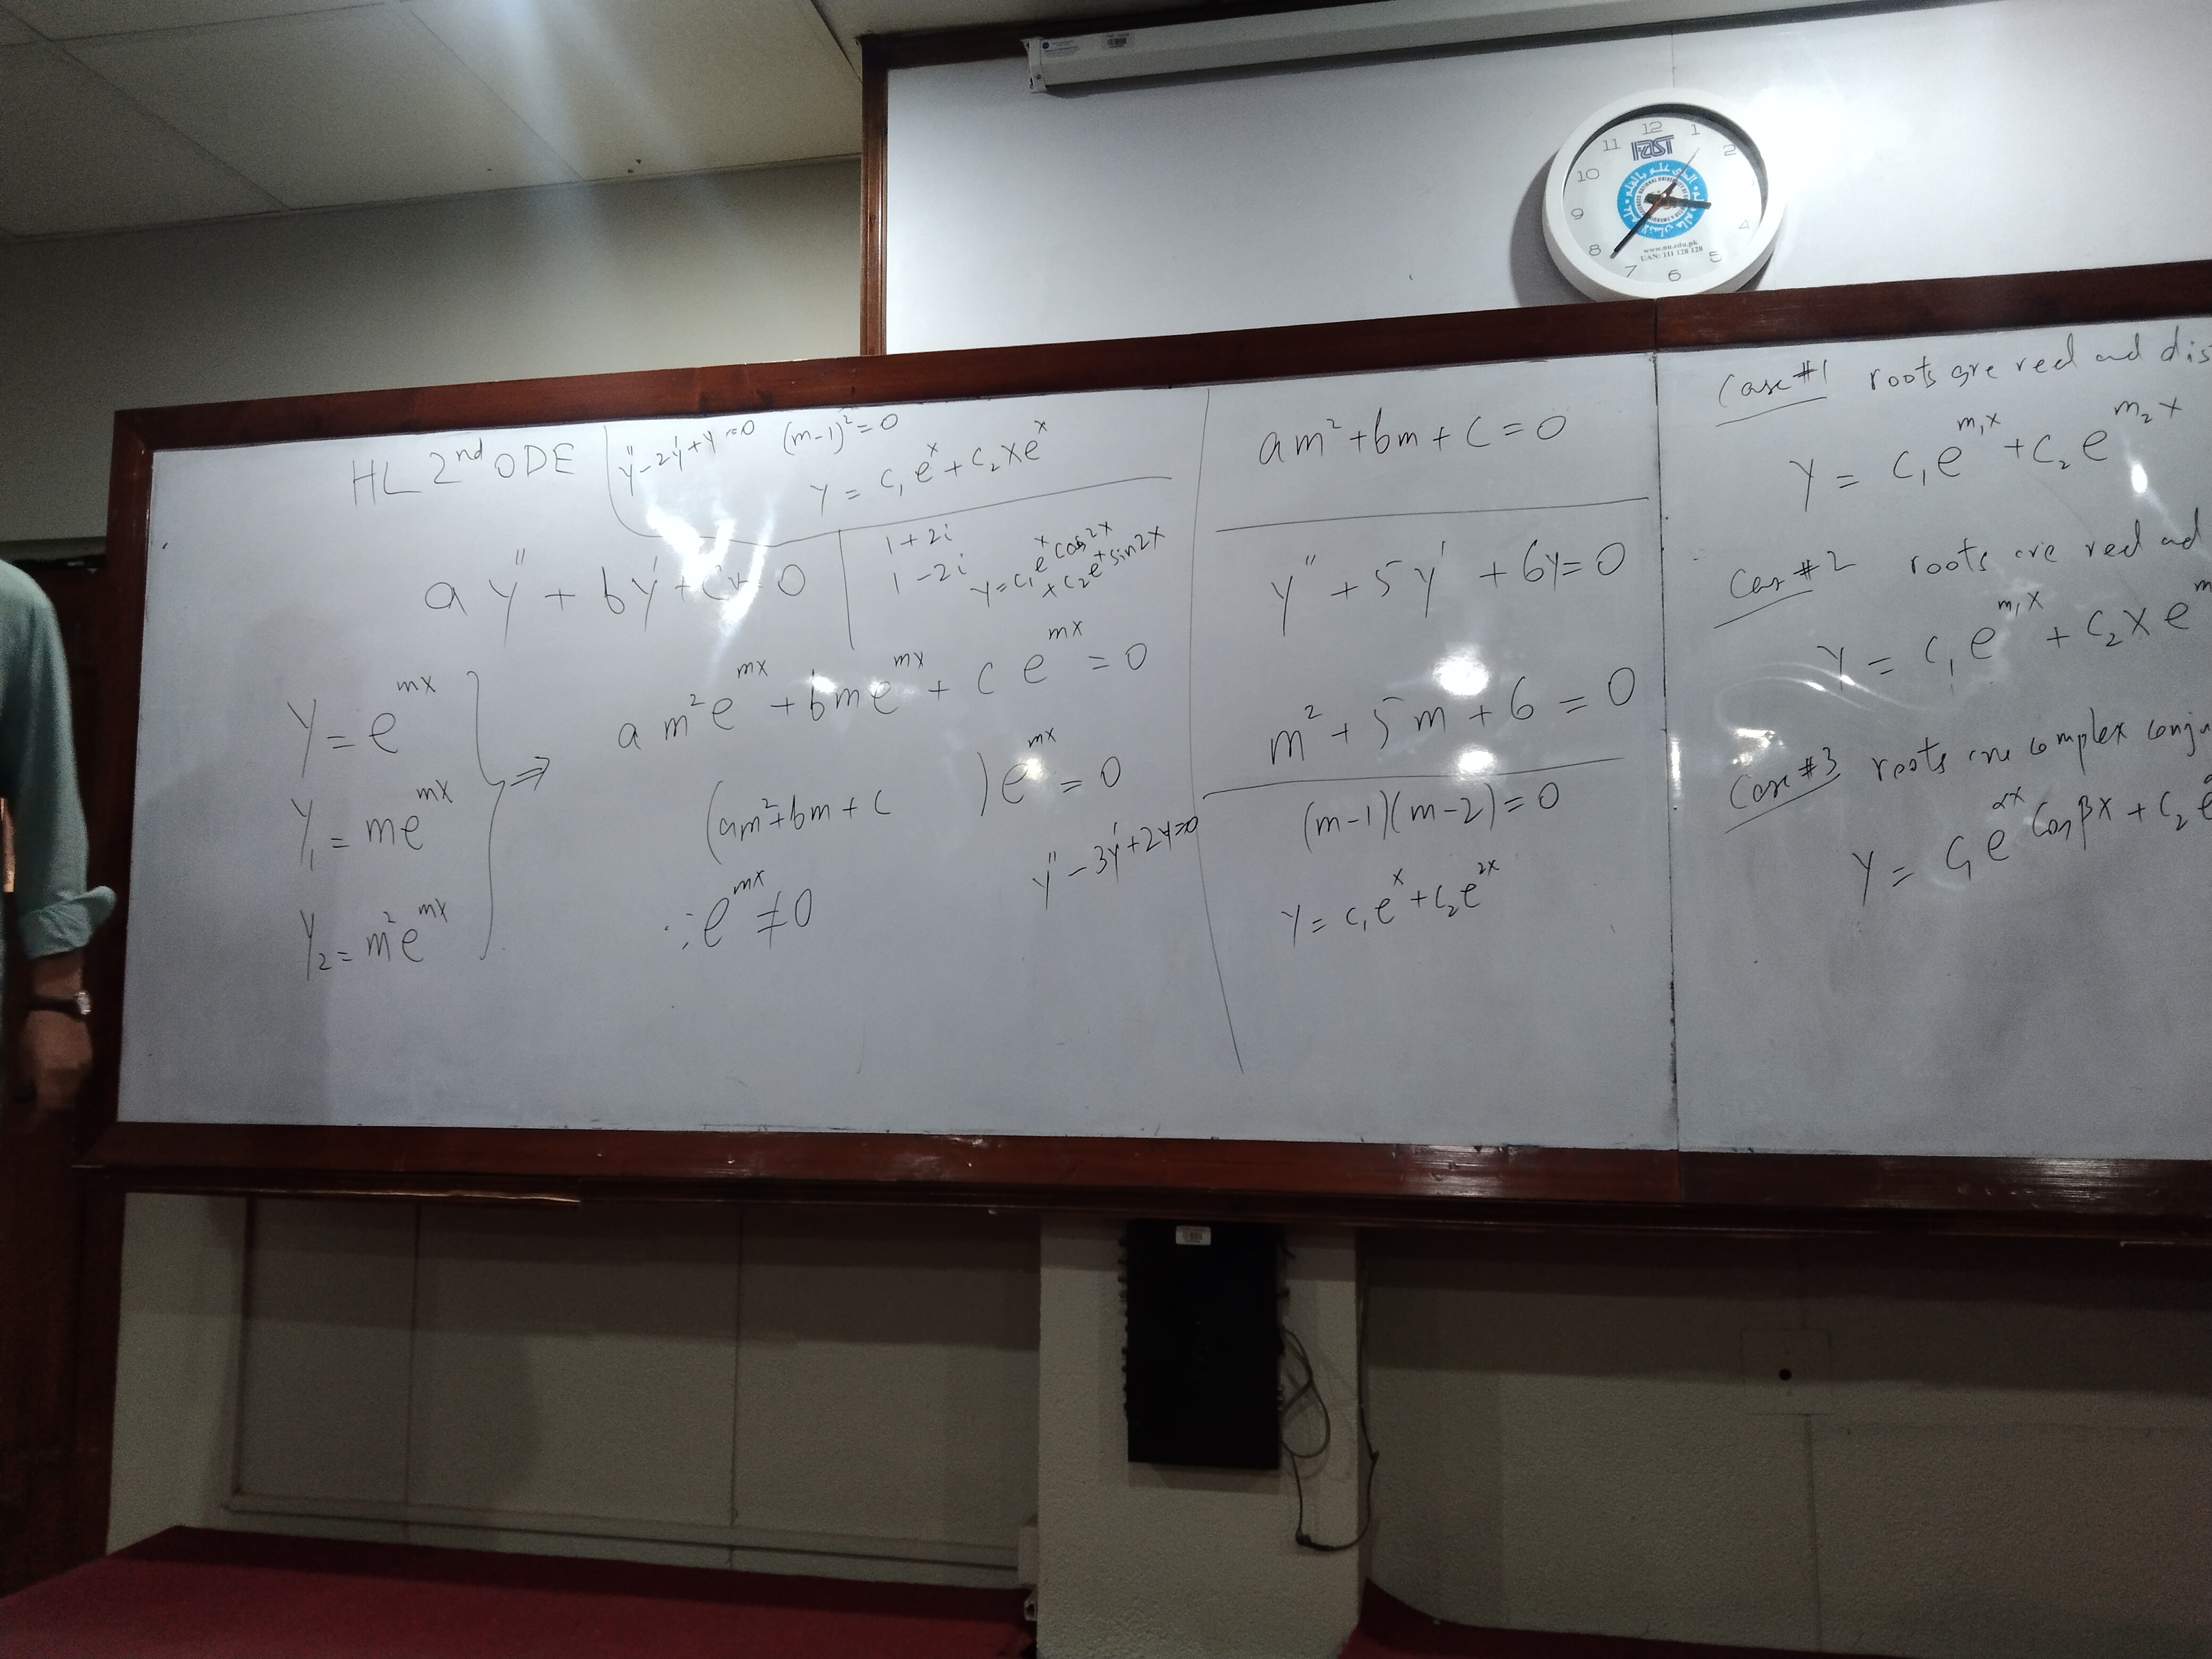 12
1
2
4
5
6
7
8
9
10
11
FAST
www.nu.edu.pk
UAN: 111 128 128
HL 2nd ODE
y'' - 2y' + y = 0   (m-1)² = 0
y = c₁eˣ + c₂xeˣ
ay'' + by' + cy = 0
1+2i
1-2i
y = c₁eˣcos2x
+ c₂eˣsin2x
y = e^{mx}
y₁ = me^{mx}
y₂ = m²e^{mx}
⇒ am²e^{mx} + bme^{mx} + ce^{mx} = 0
(am²+bm+c)e^{mx} = 0
∵ e^{mx} ≠ 0
y'' - 3y' + 2y = 0
am² + bm + c = 0
y'' + 5y' + 6y = 0
m² + 5m + 6 = 0
(m-1)(m-2) = 0
y = c₁eˣ + c₂e^{2x}
Case #1 roots are real and dis
y = c₁e^{m₁x} + c₂e^{m₂x}
Case #2 roots are real and
y = c₁e^{m₁x} + c₂xe^{m
Case #3 roots are complex conju
y = c₁e^{αx}Cosβx + c₂e